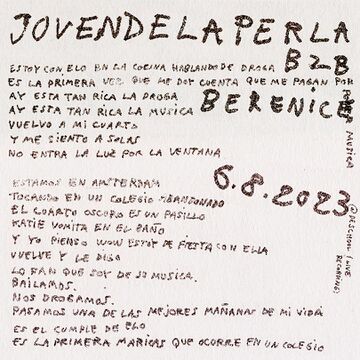 JOVENDELAPERLA
B2B
BERENICE
ESTOY CON ELO EN LA COCINA HABLANDO DE DROGA
ES LA PRIMERA VEZ QUE ME DOY CUENTA QUE ME PAGAN POR
PONER MUSICA
AY ESTA TAN RICA LA DROGA
AY ESTA TAN RICA LA MUSICA
VUELVO A MI CUARTO
Y ME SIENTO A SOLAS
NO ENTRA LA LUZ POR LA VENTANA
6.8.2023
@DESCHOOL (LIVE
RECORDING)
ESTAMOS EN AMSTERDAM
TOCANDO EN UN COLEGIO ABANDONADO
EL CUARTO OSCURO ES UN PASILLO
KATIE VOMITA EN EL BAÑO
Y YO PIENSO WOW ESTOY DE FIESTA CON ELLA
VUELVE Y LE DIGO
LO FAN QUE SOY DE SU MUSICA.
BAILAMOS.
NOS DROGAMOS.
PASAMOS UNA DE LAS MEJORES MAÑANAS DE MI VIDA
ES EL CUMPLE DE ELO
ES LA PRIMERA MARICAS QUE OCURRE EN UN COLEGIO